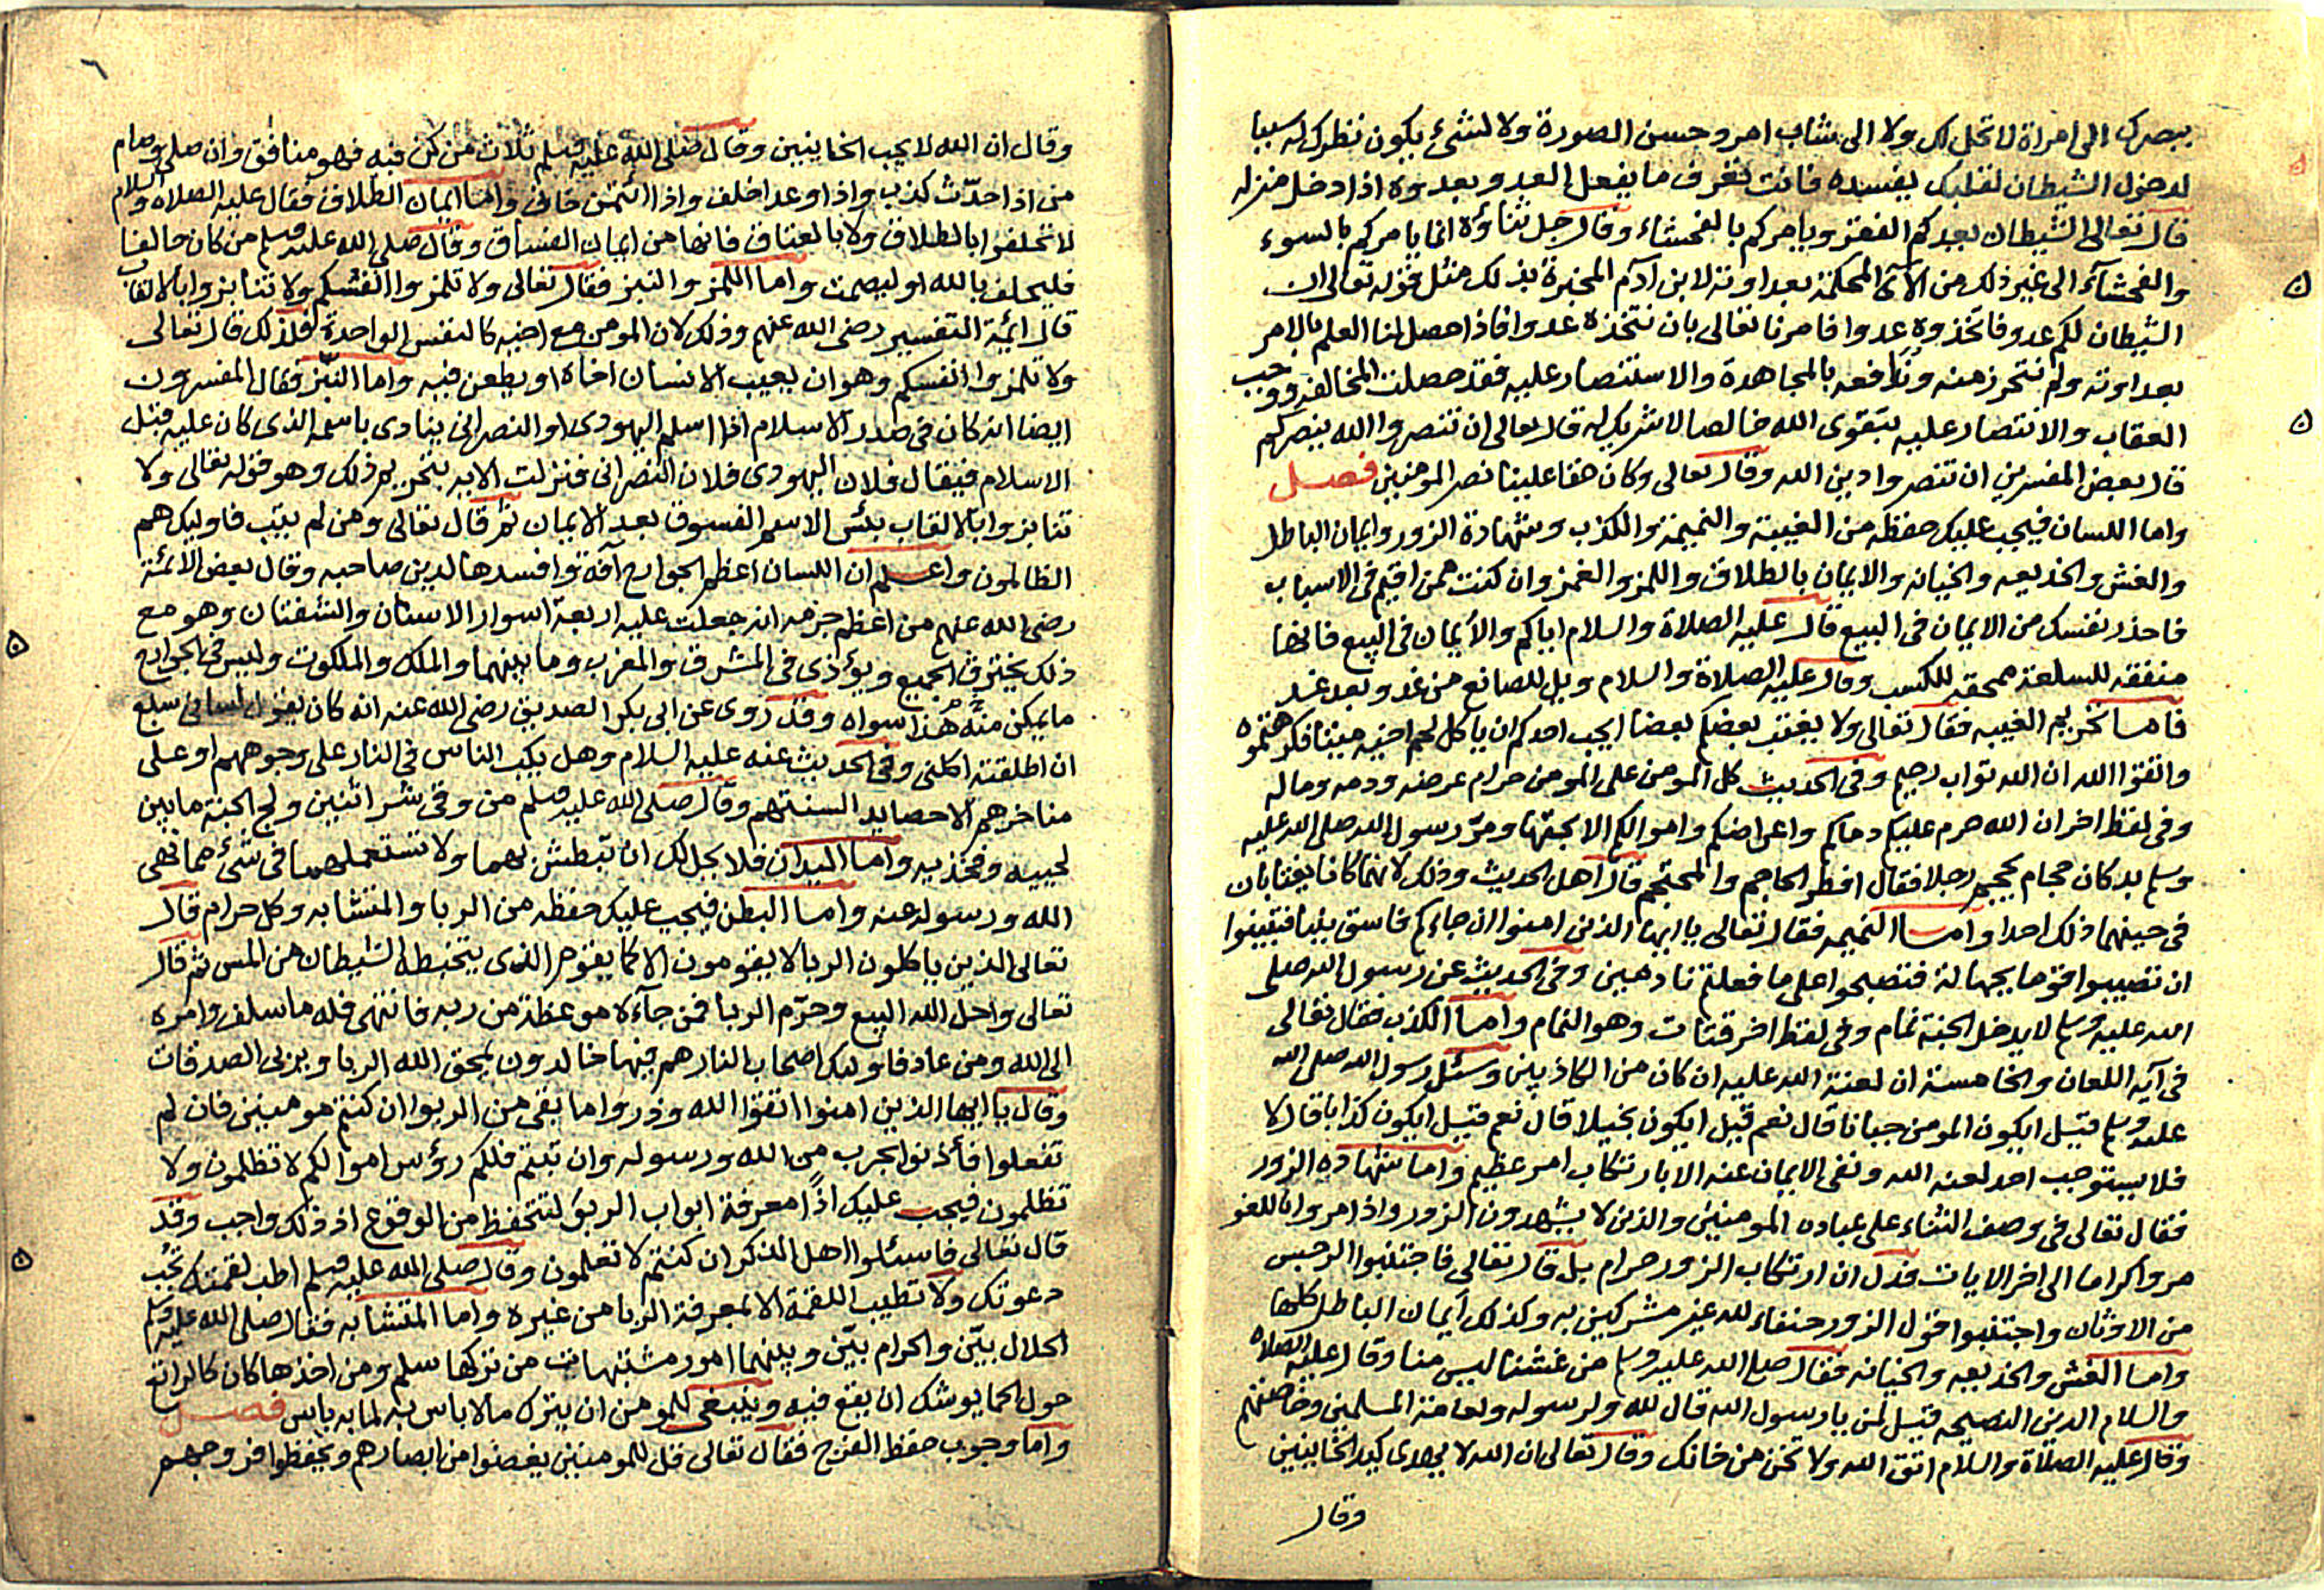 ببصرك الى امراة لا تحل لك ولا الى شاب امرد حسن الصورة ولا لشئ يكون نظرك له سببا
لدخول الشيطان لقلبك يفسده فانت تعرف ما يفعل العدو بعدوه اذا دخل منزله
قال تعالى الشيطان يعدكم الفقر ويامركم بالفحشاء وقال جل ثناؤه انما يامركم بالسوء
والفحشاء الى غير ذلك من الآي المحكمة بعداوته لابن آدم المخبرة بذلك مثل قوله تعالى ان
الشيطان لكم عدو فاتخذوه عدوا فامرنا تعالى بان نتخذه عدوا فاذا حصل لنا العلم بالامر
بعداوته ولم نتحرز منه وندافعه بالمجاهدة والاستنصار عليه فقد حصلت المخالفة ووجب
العقاب والانتصار عليه بتقوى الله خالصا لا شريك له قال تعالى ان تنصروا الله ينصركم
قال بعض المفسرين ان تنصروا دين الله وقال تعالى وكان حقا علينا نصر المومنين فصل
واما اللسان فيجب عليك حفظه من الغيبة والنميمة والكذب وشهادة الزور وايمان الباطل
والغش والخديعه والخيانه والايمان بالطلاق واللمز والغمز وان كنت ممن اقيم في الاسباب
فاحذر نفسك من الايمان في البيع قال عليه الصلاة والسلام اياكم والأيمان في البيع فانها
منفقه للسلعة ممحقه للكسب وقال عليه الصلاة والسلام ويل للصانع من غد وبعد غد
فاما تحريم الغيبه فقال تعالى ولا يغتب بعضكم بعضا ايحب احدكم ان ياكل لحم اخيه ميتا فكرهتموه
واتقوا الله ان الله تواب رحيم وفي الحديث كل المومن على المومن حرام عرضه ودمه وماله
وفي لفظ اخر ان الله حرم عليكم دماكم واعراضكم واموالكم الا بحقها ومرّ رسول الله صلى الله عليه
وسلم بدكان حجام يحجم رجلا فقال افطر الحاجم والمحتجم قال اهل الحديث وذلك لانهما كانا يغتابان
في حينهما ذلك احدا واما النميمه فقال تعالى يا ايها الذين امنوا ان جاءكم فاسق بنبا فتبينوا
ان تصيبوا قوما بجهالة فتصبحوا على ما فعلتم نادمين وفي الحديث عن رسول الله صلى
الله عليه وسلم لا يدخل الجنة نمام وفي لفظ اخر قتات وهو النمام واما الكذب فقال تعالى
في آية اللعان والخامسة ان لعنة الله عليه ان كان من الكاذبين وسئل رسول الله صلى الله
عليه وسلم قيل ايكون المومن جبانا قال نعم قيل ايكون بخيلا قال نعم قيل ايكون كذابا قال لا
فلا يستوجب احد لعنه الله ونفى الايمان عنه الا بارتكاب امر عظيم واما شهاده الزور
فقال تعالى في وصف الثناء على عباده المومنين والذين لا يشهدون الزور واذا مروا باللغو
مروا كراما الى اخر الايات فدل ان ارتكاب الزور حرام بل قال تعالى فاجتنبوا الرجس
من الاوثان واجتنبوا قول الزور حنفاء لله غير مشركين به وكذلك أيمان الباطل كلها
واما الغش والخديعه والخيانه فقال صلى الله عليه وسلم من غشنا ليس منا وقال عليه الصلاه
والسلام الدين النصيحه قيل لمن يا رسول الله قال لله ولرسوله ولعامة المسلمين وخاصتهم
وقال عليه الصلاة والسلام اتق الله ولا تخن من خانك وقال تعالى ان الله لا يهدى كيد الخاينين
وقال
٦
وقال ان الله لا يحب الخاينين وقال صلى الله عليه وسلم ثلاث من كن فيه فهو منافق وان صلى وصام
من اذا حدّث كذب واذا وعد اخلف واذا ائتمن خان واما ايمان الطلاق فقال عليه الصلاه والسلام
لا تحلفوا بالطلاق ولا بالعتاق فانها من ايمان الفساق وقال صلى الله عليه وسلم من كان حالفا
فليحلف بالله او ليصمت واما اللمز والنبز فقال تعالى ولا تلمزوا انفسكم ولا تنابزوا بالالقاب
قال ايمة التفسير رضى الله عنهم وذلك لان المومن مع اخيه كالنفس الواحدة فلذلك قال تعالى
ولا تلمزوا انفسكم وهو ان يعيب الانسان اخاه او يطعن فيه واما النبز فقال المفسرون
ايضا انه كان في صدر الاسلام اذا اسلم اليهودى او النصرانى ينادى باسمه الذى كان عليه قبل
الاسلام فيقال فلان اليهودى فلان النصرانى فنزلت الايه بتحريم ذلك وهو قوله تعالى ولا
تنابزوا بالالقاب بئس الاسم الفسوق بعد الايمان ثم قال تعالى ومن لم يتب فاوليك هم
الظالمون واعلم ان اللسان اعظم الجوارح آفة وافسدها لدين صاحبه وقال بعض الائمة
رضى الله عنهم من اعظم جرمه انه جعلت عليه اربعة اسوار الاسنان والشفتان وهو مع
ذلك يخترق الجميع ويؤذى في المشرق والمغرب وما بينهما والملك والملكوت وليس في الجوارح
ما يمكن منه هذا سواه وقد روى عن ابى بكر الصديق رضى الله عنه انه كان يقول لسانى سبع
ان اطلقته اكلنى وفي الحديث عنه عليه السلام وهل يكب الناس في النار على وجوههم او على
مناخرهم الا حصايد السنتهم وقال صلى الله عليه وسلم من وقى شر اثنين ولج الجنة ما بين
لحييه وفخذيه واما اليدان فلا يحل لك ان تبطش بهما ولا تستعملهما في شئ مما نهى
الله ورسوله عنه واما البطن فيجب عليك حفظه من الربا والمتشابه وكل حرام قال
تعالى الذين ياكلون الربا لا يقومون الا كما يقوم الذى يتخبطه الشيطان من المس ثم قال
تعالى واحل الله البيع وحرّم الربا فمن جآءه موعظة من ربه فانتهى فله ما سلف وامره
الى الله ومن عاد فاوليك اصحاب النار هم فيها خالدون يمحق الله الربا ويربى الصدقات
وقال يا ايها الذين امنوا اتقوا الله وذروا ما بقى من الربوا ان كنتم مومنين فان لم
تفعلوا فأذنوا بحرب من الله ورسوله وان تبتم فلكم رؤس اموالكم لا تظلمون ولا
تظلمون فيجب عليك اذًا معرفة ابواب الربو لتتحفظ من الوقوع اذ ذلك واجب وقد
قال تعالى فاسئلوا اهل الذكر ان كنتم لا تعلمون وقال صلى الله عليه وسلم اطب لقمتك تجب
دعوتك ولا تطيب اللقمة الا بمعرفة الربا من غيره واما المتشابه فقال صلى الله عليه وسلم
الحلال بيّن والحرام بيّن وبينهما امور مشتبهات من تركها سلم ومن اخذها كان كالراتع
حول الحما يوشك ان يقع فيه وينبغى للمومن ان يترك مالا باس به لما به باس فصل
واما وجوب حفظ الفرج فقال تعالى قل للمومنين يغضوا من ابصارهم ويحفظوا فروجهم